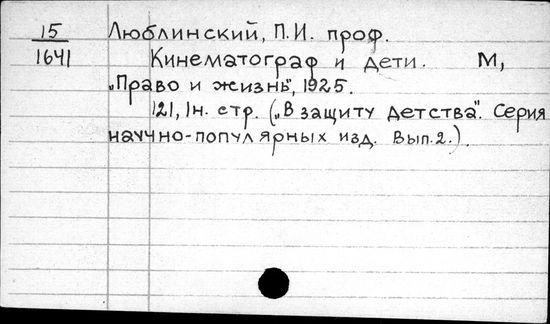 15
1641
Люблинский, П.И. проф.
Кинематограф и дети. М,
„Право и жизнь", 1925.
121, 1н. стр. („В защиту детства". Серия
научно-популярных изд. Вып.2.).